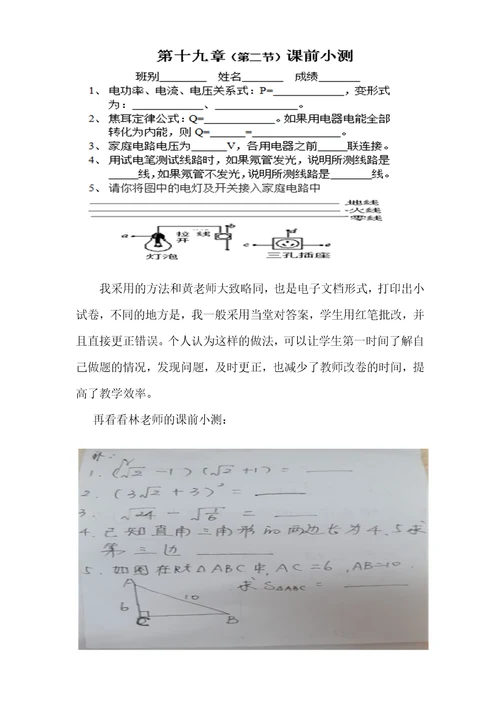 第十九章（第二节）课前小测
班别_______ 姓名_______ 成绩_______
1、 电功率、电流、电压关系式：P=____________，变形式
为：____________、______________。
2、 焦耳定律公式：Q=____________。如果用电器电能全部
转化为内能，则 Q=______=________________。
3、 家庭电路电压为______V，各用电器之前_____联连接。
4、 用试电笔测试线路时，如果氖管发光，说明所测线路是
_____线，如果氖管不发光，说明所测线路是_______线。
5、 请你将图中的电灯及开关接入家庭电路中
地线
火线
零线
a 拉线 b d
开
灯泡 三孔插座
我采用的方法和黄老师大致略同，也是电子文档形式，打印出小
试卷，不同的地方是，我一般采用当堂对答案，学生用红笔批改，并
且直接更正错误。个人认为这样的做法，可以让学生第一时间了解自
己做题的情况，发现问题，及时更正，也减少了教师改卷的时间，提
高了教学效率。
再看看林老师的课前小测：
1. (√2 −1)(√2 +1) = ____
2. (3√2 +3)² = ____
3. √24 − √(1/6) = ____
4. 已知直角三角形的两边长为4、5求
第三边 ______
5. 如图在Rt△ABC中, AC=6, AB=10.
求S△ABC = ______
A
6 10
C B